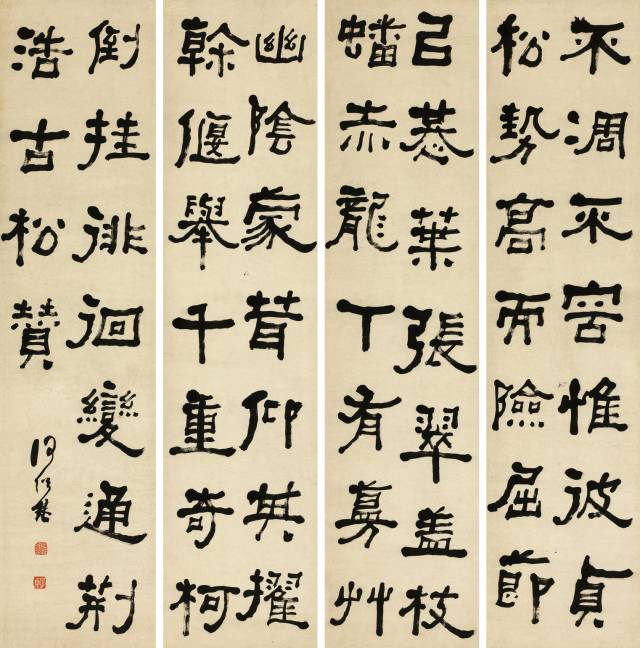 不凋不容惟彼貞
松勢高而險屈節
㠯恭葉張翠盖枝
蟠赤龍丅有蔓艸
幽陰蒙茸仰其擢
榦偃舉千重奇柯
倒挂徘徊變通荆
浩古松贊
何紹基